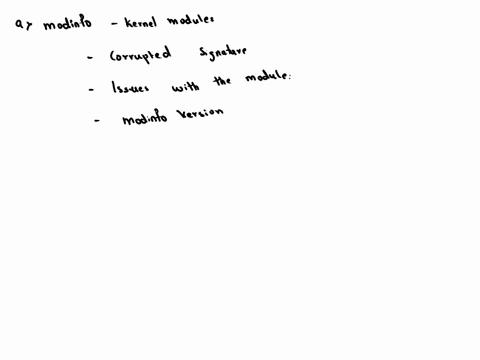 a> modinfo - kernel modules
- Corrupted Signature
- Issues with the module.
- modinfo Version